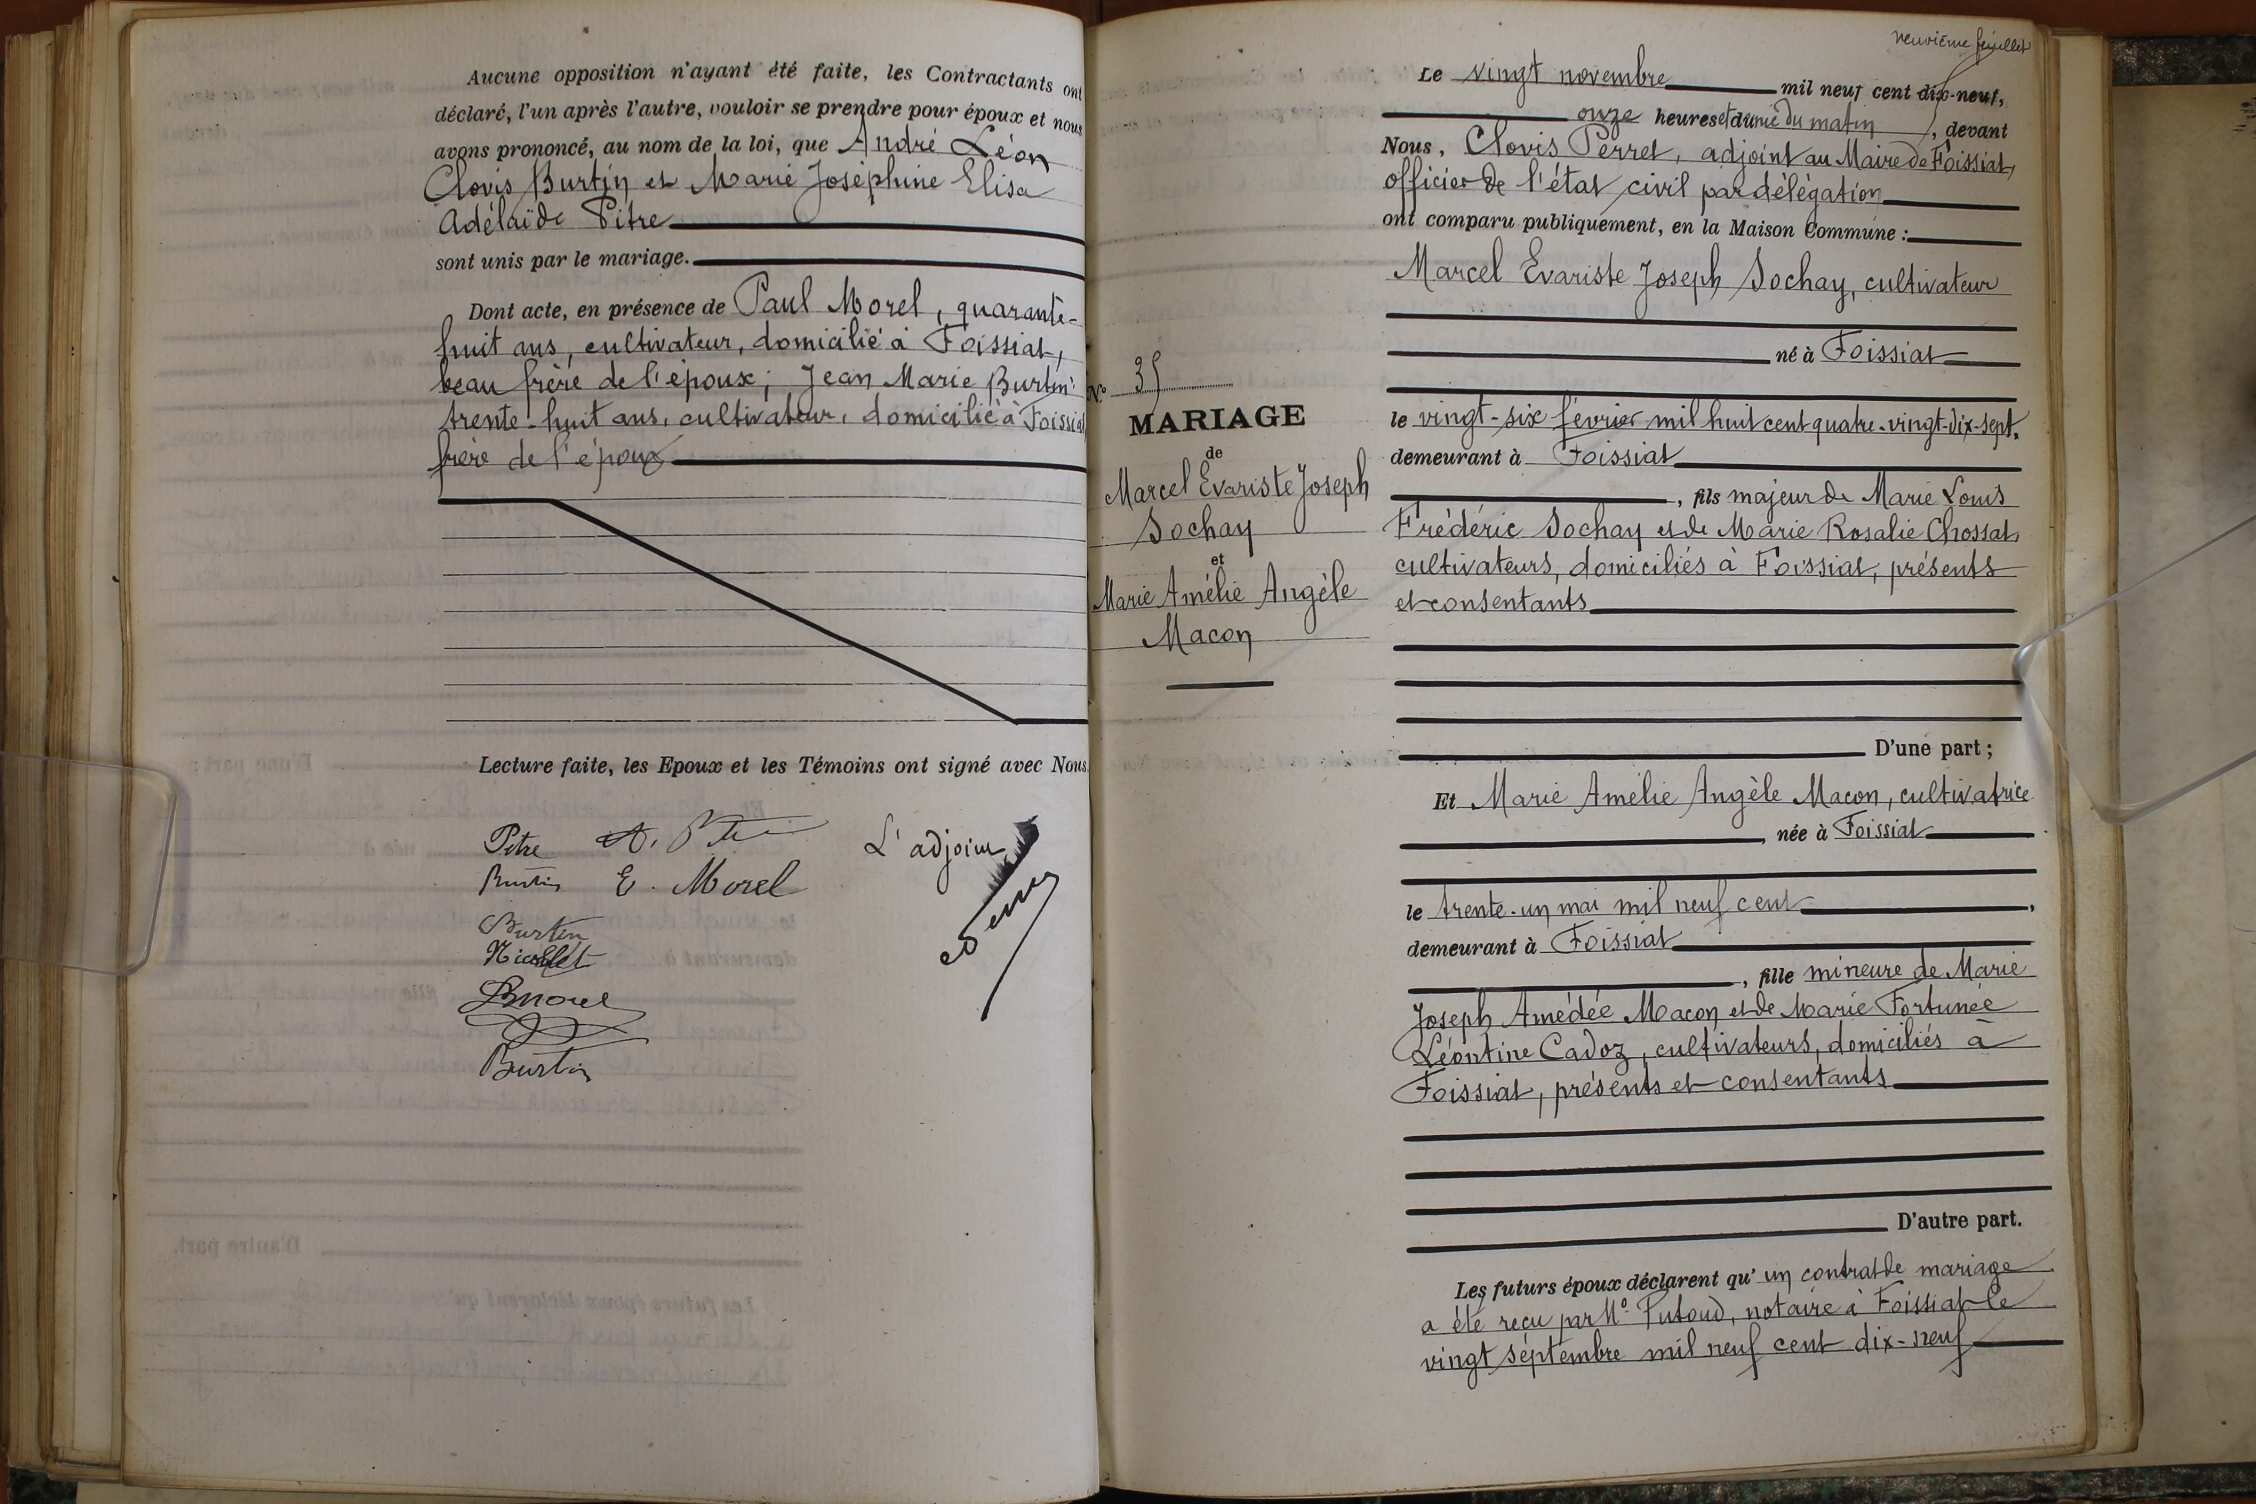 Aucune opposition n'ayant été faite, les Contractants ont
déclaré, l'un après l'autre, vouloir se prendre pour époux et nous
avons prononcé, au nom de la loi, que André Léon
Clovis Burtin et Marie Joséphine Elisa
Adélaïde Pitre
sont unis par le mariage.
Dont acte, en présence de Paul Morel, quarante-
huit ans, cultivateur, domicilié à Foissiat,
beau frère de l'époux; Jean Marie Burtin
trente-huit ans, cultivateur, domicilié à Foissiat
frère de l'époux
Lecture faite, les Epoux et les Témoins ont signé avec Nous.
Pitre
L'adjoint
Burtin E. Morel
Perret
Burtin
Nicollet
Burtin
neuvième feuillet
Le vingt novembre mil neuf cent dix-neuf,
onze heures et demie du matin, devant
Nous, Clovis Perret, adjoint au Maire de Foissiat,
officier de l'état civil par délégation
ont comparu publiquement, en la Maison Commune :
Marcel Evariste Joseph Sochay, cultivateur
né à Foissiat
le vingt-six février mil huit cent quatre-vingt-dix-sept,
demeurant à Foissiat
, fils majeur de Marie Louis
Frédéric Sochay et de Marie Rosalie Chossat,
cultivateurs, domiciliés à Foissiat, présents
et consentants
D'une part ;
N° 35
MARIAGE
de
Marcel Evariste Joseph
Sochay
et
Marie Amélie Angèle
Macon
Et Marie Amélie Angèle Macon, cultivatrice
, née à Foissiat
le trente-un mai mil neuf cent,
demeurant à Foissiat
, fille mineure de Marie
Joseph Amédée Macon et de Marie Fortunée
Léontine Cadoz, cultivateurs, domiciliés à
Foissiat, présents et consentants
D'autre part.
Les futurs époux déclarent qu'un contrat de mariage
a été reçu par Me Putoud, notaire à Foissiat le
vingt septembre mil neuf cent dix-neuf